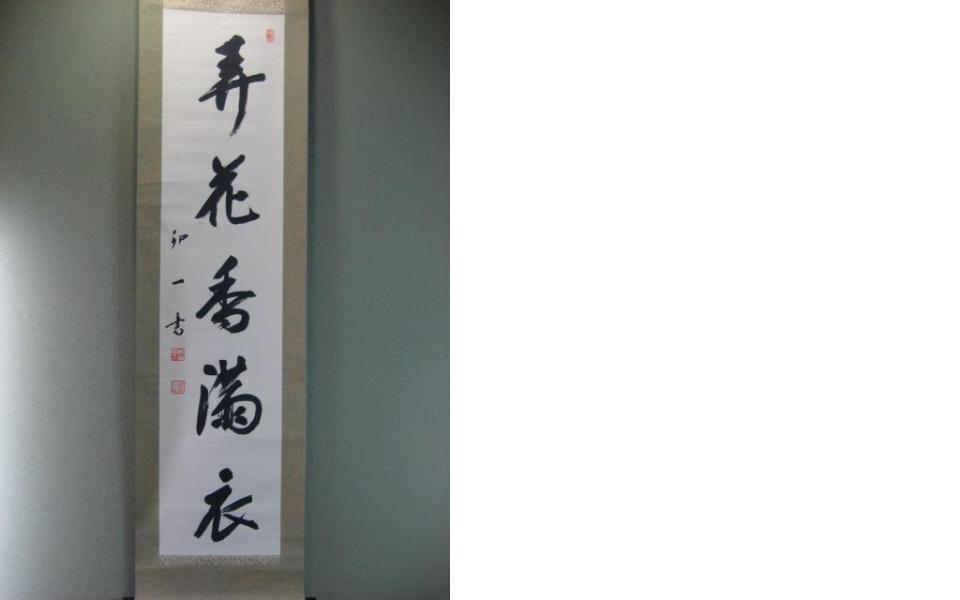 弄花香満衣
卯一書